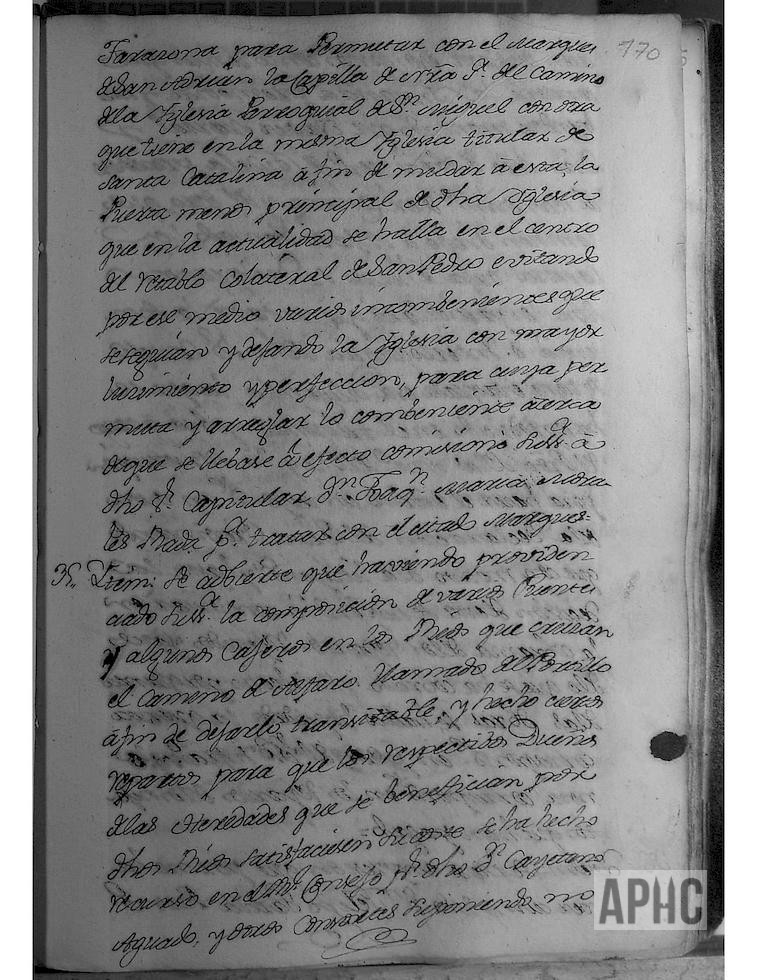 Tarazona para Permutar con el Marques 770
de San Adrian la Capilla de Nrã Sª. del Camino
dela Yglesia Parroquial de Sn. Miguel con otra
que tiene en la misma Yglesia titular de
Santa Catalina â fin de mudar â esta, la
Puerta menos principal de dha Yglesia
que en la actualidad se halla en el centro
del retablo Colateral de San Pedro evitando
por ese medio varios incombenientes que
se seguian y dejando la Yglesia con mayor
lucimiento y perfeccion, para cuya per
muta y arreglar lo combeniente âcerca
de que se llebase â efecto comisionó â
dho Sr. Capitular Dn. Joaqn. Maria
Rada pª. tratar con el citado Marques
Ytem: Se adbierte que haviendo providen
ciado la composicion de varios Puentes
y algunos Cajeros en los Rios que cruzan
el Camino de Alfaro llamado del Portillo
âfin de dejarlo transitable, y hecho ciertos
repartos para que los respectibos Dueños
delas Heredades que se benefician por
dhos Rios satisfaciesen su coste se ha hecho
recurso en el Rl. Consejo pr. dho Dn. Cayetano
Aguado, y otros Consortes suponiendo no
APHC